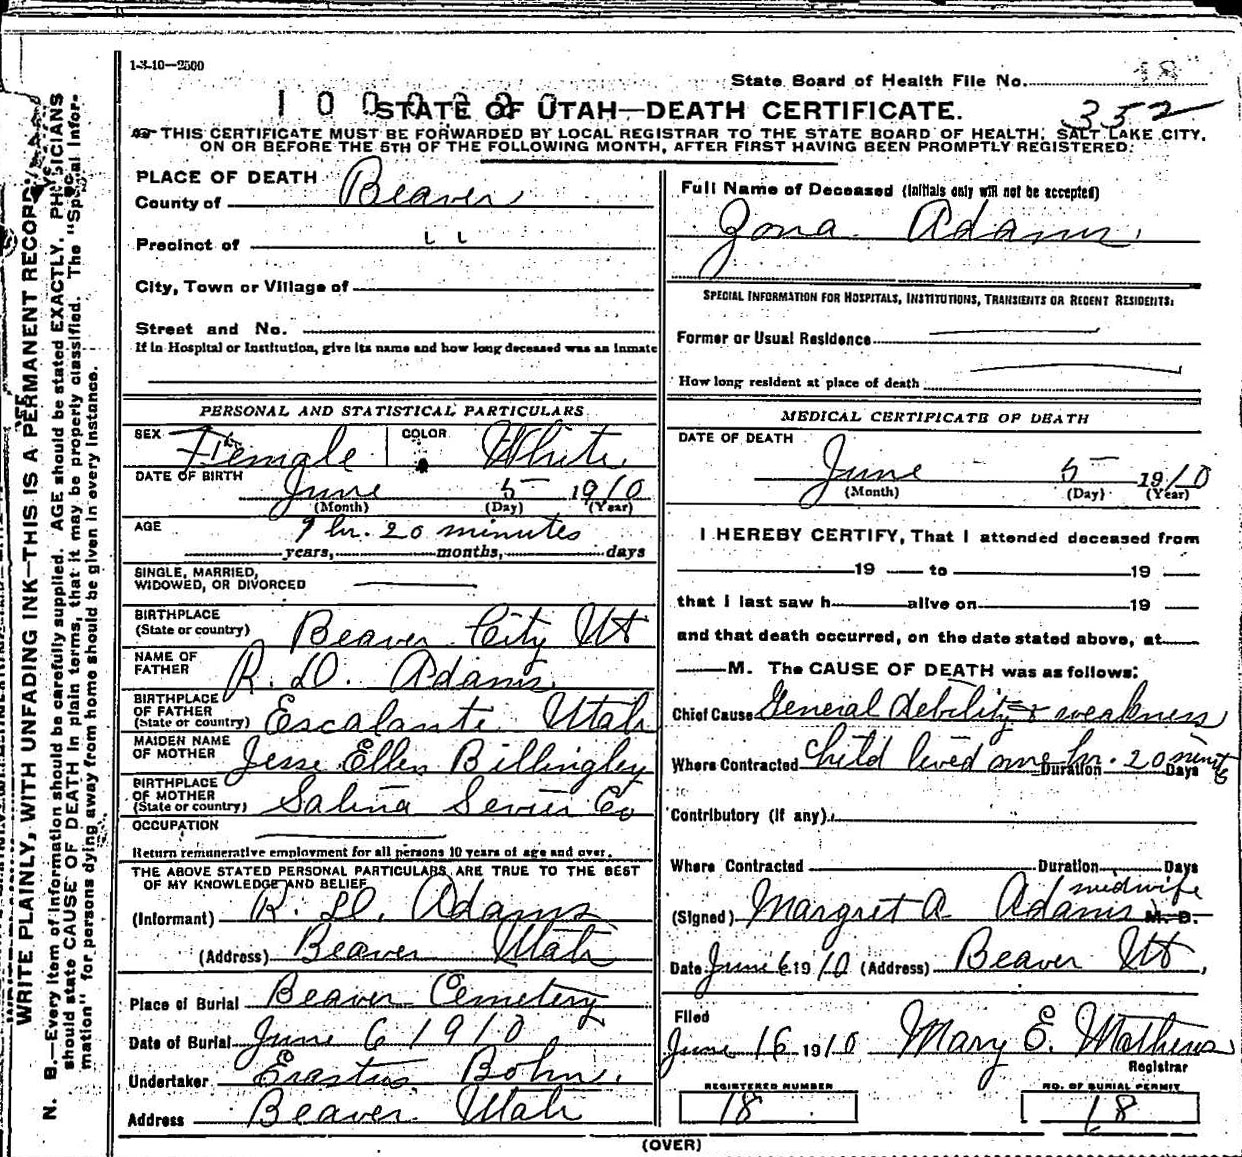 1-3-10—2500
State Board of Health File No. 18
1 0 0 0 2 2 0
352
STATE OF UTAH—DEATH CERTIFICATE.
THIS CERTIFICATE MUST BE FORWARDED BY LOCAL REGISTRAR TO THE STATE BOARD OF HEALTH, SALT LAKE CITY,
ON OR BEFORE THE 5TH OF THE FOLLOWING MONTH, AFTER FIRST HAVING BEEN PROMPTLY REGISTERED.
WRITE PLAINLY, WITH UNFADING INK—THIS IS A PERMANENT RECORD
N. B.—Every item of information should be carefully supplied. AGE should be stated EXACTLY. PHYSICIANS
should state CAUSE OF DEATH in plain terms, that it may be properly classified. The "Special Infor-
mation" for persons dying away from home should be given in every instance.
PLACE OF DEATH
County of Beaver
Precinct of " "
City, Town or Village of
Street and No.
If in Hospital or Institution, give its name and how long deceased was an inmate
PERSONAL AND STATISTICAL PARTICULARS
SEX Female COLOR White
DATE OF BIRTH June 5 1910
(Month) (Day) (Year)
AGE 1 hr. 20 minutes
years, months, days
SINGLE, MARRIED,
WIDOWED, OR DIVORCED
BIRTHPLACE
(State or country) Beaver City Ut
NAME OF
FATHER R. D. Adams
BIRTHPLACE
OF FATHER
(State or country) Escalante Utah
MAIDEN NAME
OF MOTHER Jesse Ellen Billingley
BIRTHPLACE
OF MOTHER
(State or country) Salina Sevier Co
OCCUPATION
Return remunerative employment for all persons 10 years of age and over.
THE ABOVE STATED PERSONAL PARTICULARS ARE TRUE TO THE BEST
OF MY KNOWLEDGE AND BELIEF
(Informant) R. D. Adams
(Address) Beaver Utah
Place of Burial Beaver Cemetery
Date of Burial June 6 1910
Undertaker Erastus Bohn.
Address Beaver Utah
Full Name of Deceased (Initials only will not be accepted)
Zona Adams,
SPECIAL INFORMATION FOR HOSPITALS, INSTITUTIONS, TRANSIENTS OR RECENT RESIDENTS:
Former or Usual Residence
How long resident at place of death
MEDICAL CERTIFICATE OF DEATH
DATE OF DEATH
June 5 1910
(Month) (Day) (Year)
I HEREBY CERTIFY, That I attended deceased from
19 to 19
that I last saw h alive on 19
and that death occurred, on the date stated above, at
M. The CAUSE OF DEATH was as follows:
Chief Cause General debility & weakness
Where Contracted Child lived one hr. 20 minuts
Duration Days
Contributory (if any)
Where Contracted Duration Days
midwife
(Signed) Margret A Adams M. D.
Date June 6 1910 (Address) Beaver Ut,
Filed
June 16 1910 Mary E. Mathews
Registrar
REGISTERED NUMBER NO. OF BURIAL PERMIT
18 18
(OVER)